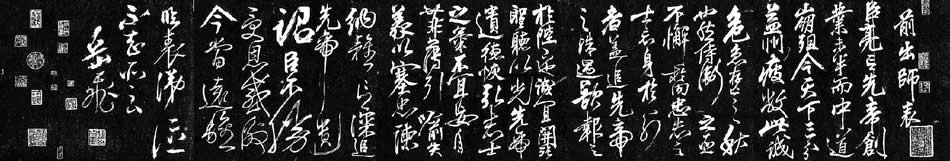 前出師表
臣亮言先帝創
業未半而中道
崩殂今天下三分
益州疲敝此誠
危急存亡之秋
也然侍衛之臣
不懈於內忠志之
士忘身於外
者蓋追先帝
之殊遇欲報之
於陛下誠宜開張
聖聽以光先帝
遺德恢弘志士
之氣不宜妄自
菲薄引喻失
義以塞忠諫
納雅言深追
先帝遺
詔臣不勝
受恩感激
今當遠離
臨表涕泣
不知所云
岳飛